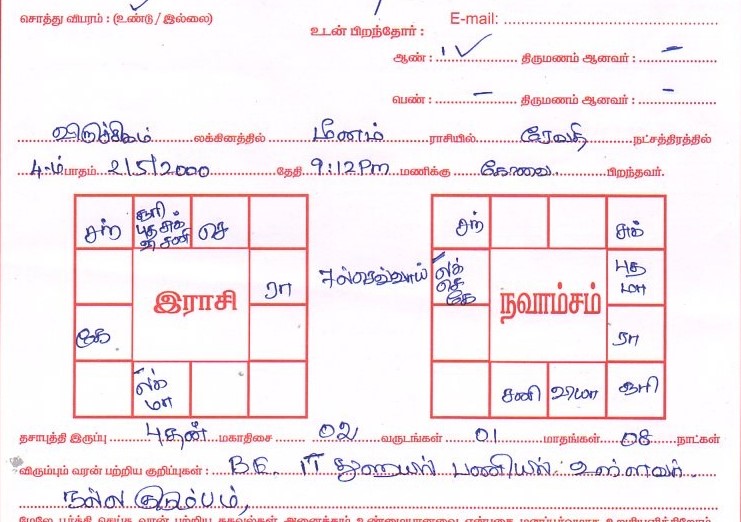 சொத்து விபரம் : (உண்டு / இல்லை)
E-mail:
உடன் பிறந்தோர் :
ஆண் : 1 திருமணம் ஆனவர் : –
பெண் : – திருமணம் ஆனவர் : –
லக்கினத்தில் மீனம் ராசியில் ரேவதி நட்சத்திரத்தில்
4-ம் பாதம் 2/5/2000 தேதி 9:12 Pm மணிக்கு கோவை பிறந்தவர்.
சந் சூரி செ
புத சுக்
சனி
ரா
இராசி
கே
லக்
மா
7ல் செவ்வாய்
சந் சுக்
லக் புத
செ மா
கே
நவாம்சம்
ரா
சனி வியா சூரி
தசாபுத்தி இருப்பு புதன் மகாதிசை 02 வருடங்கள் 01 மாதங்கள் 08 நாட்கள்
விரும்பும் வரன் பற்றிய குறிப்புகள் : B.E. IT துறையில் பணியில் உள்ளவர்.
நல்ல குடும்பம்,